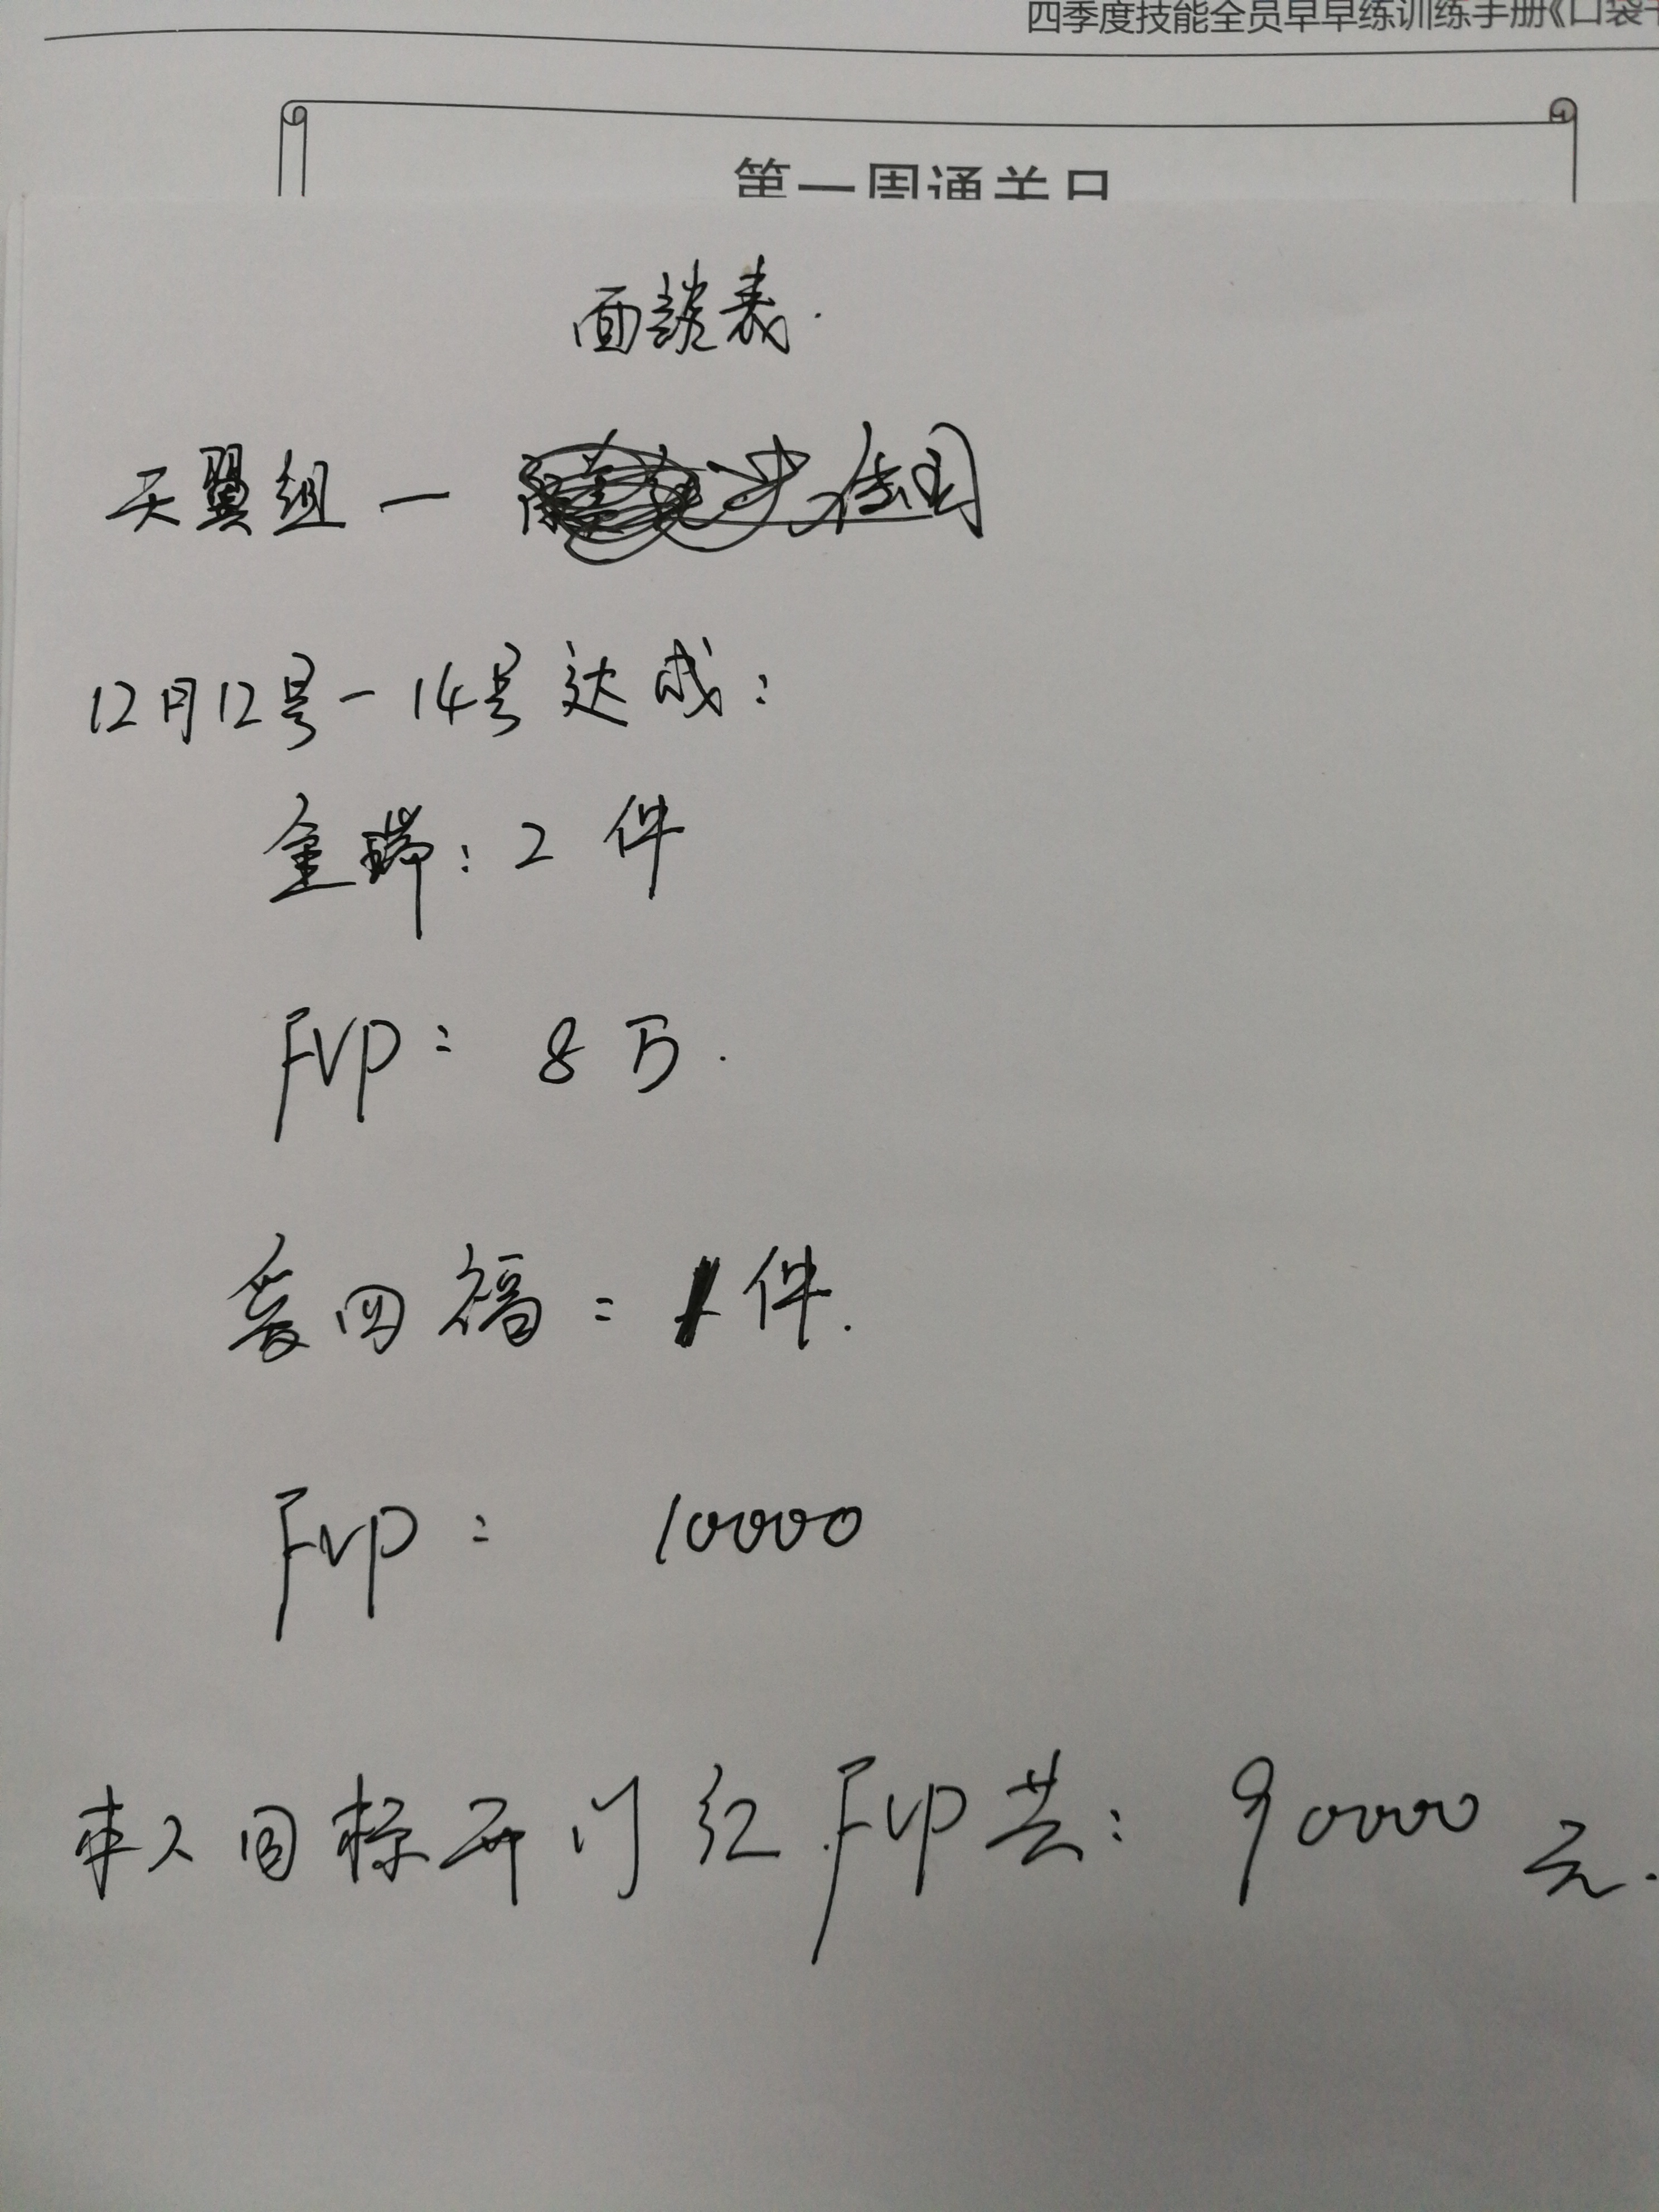 四季度技能全员早早练训练手册《口袋
第一周通关口
面谈表.
天翼组一
12月12号-14号达成:
金瑞:2件
FVP:8万.
爱四福:1件.
FVP: 10000
本人目标开门红FVP共:90000元.